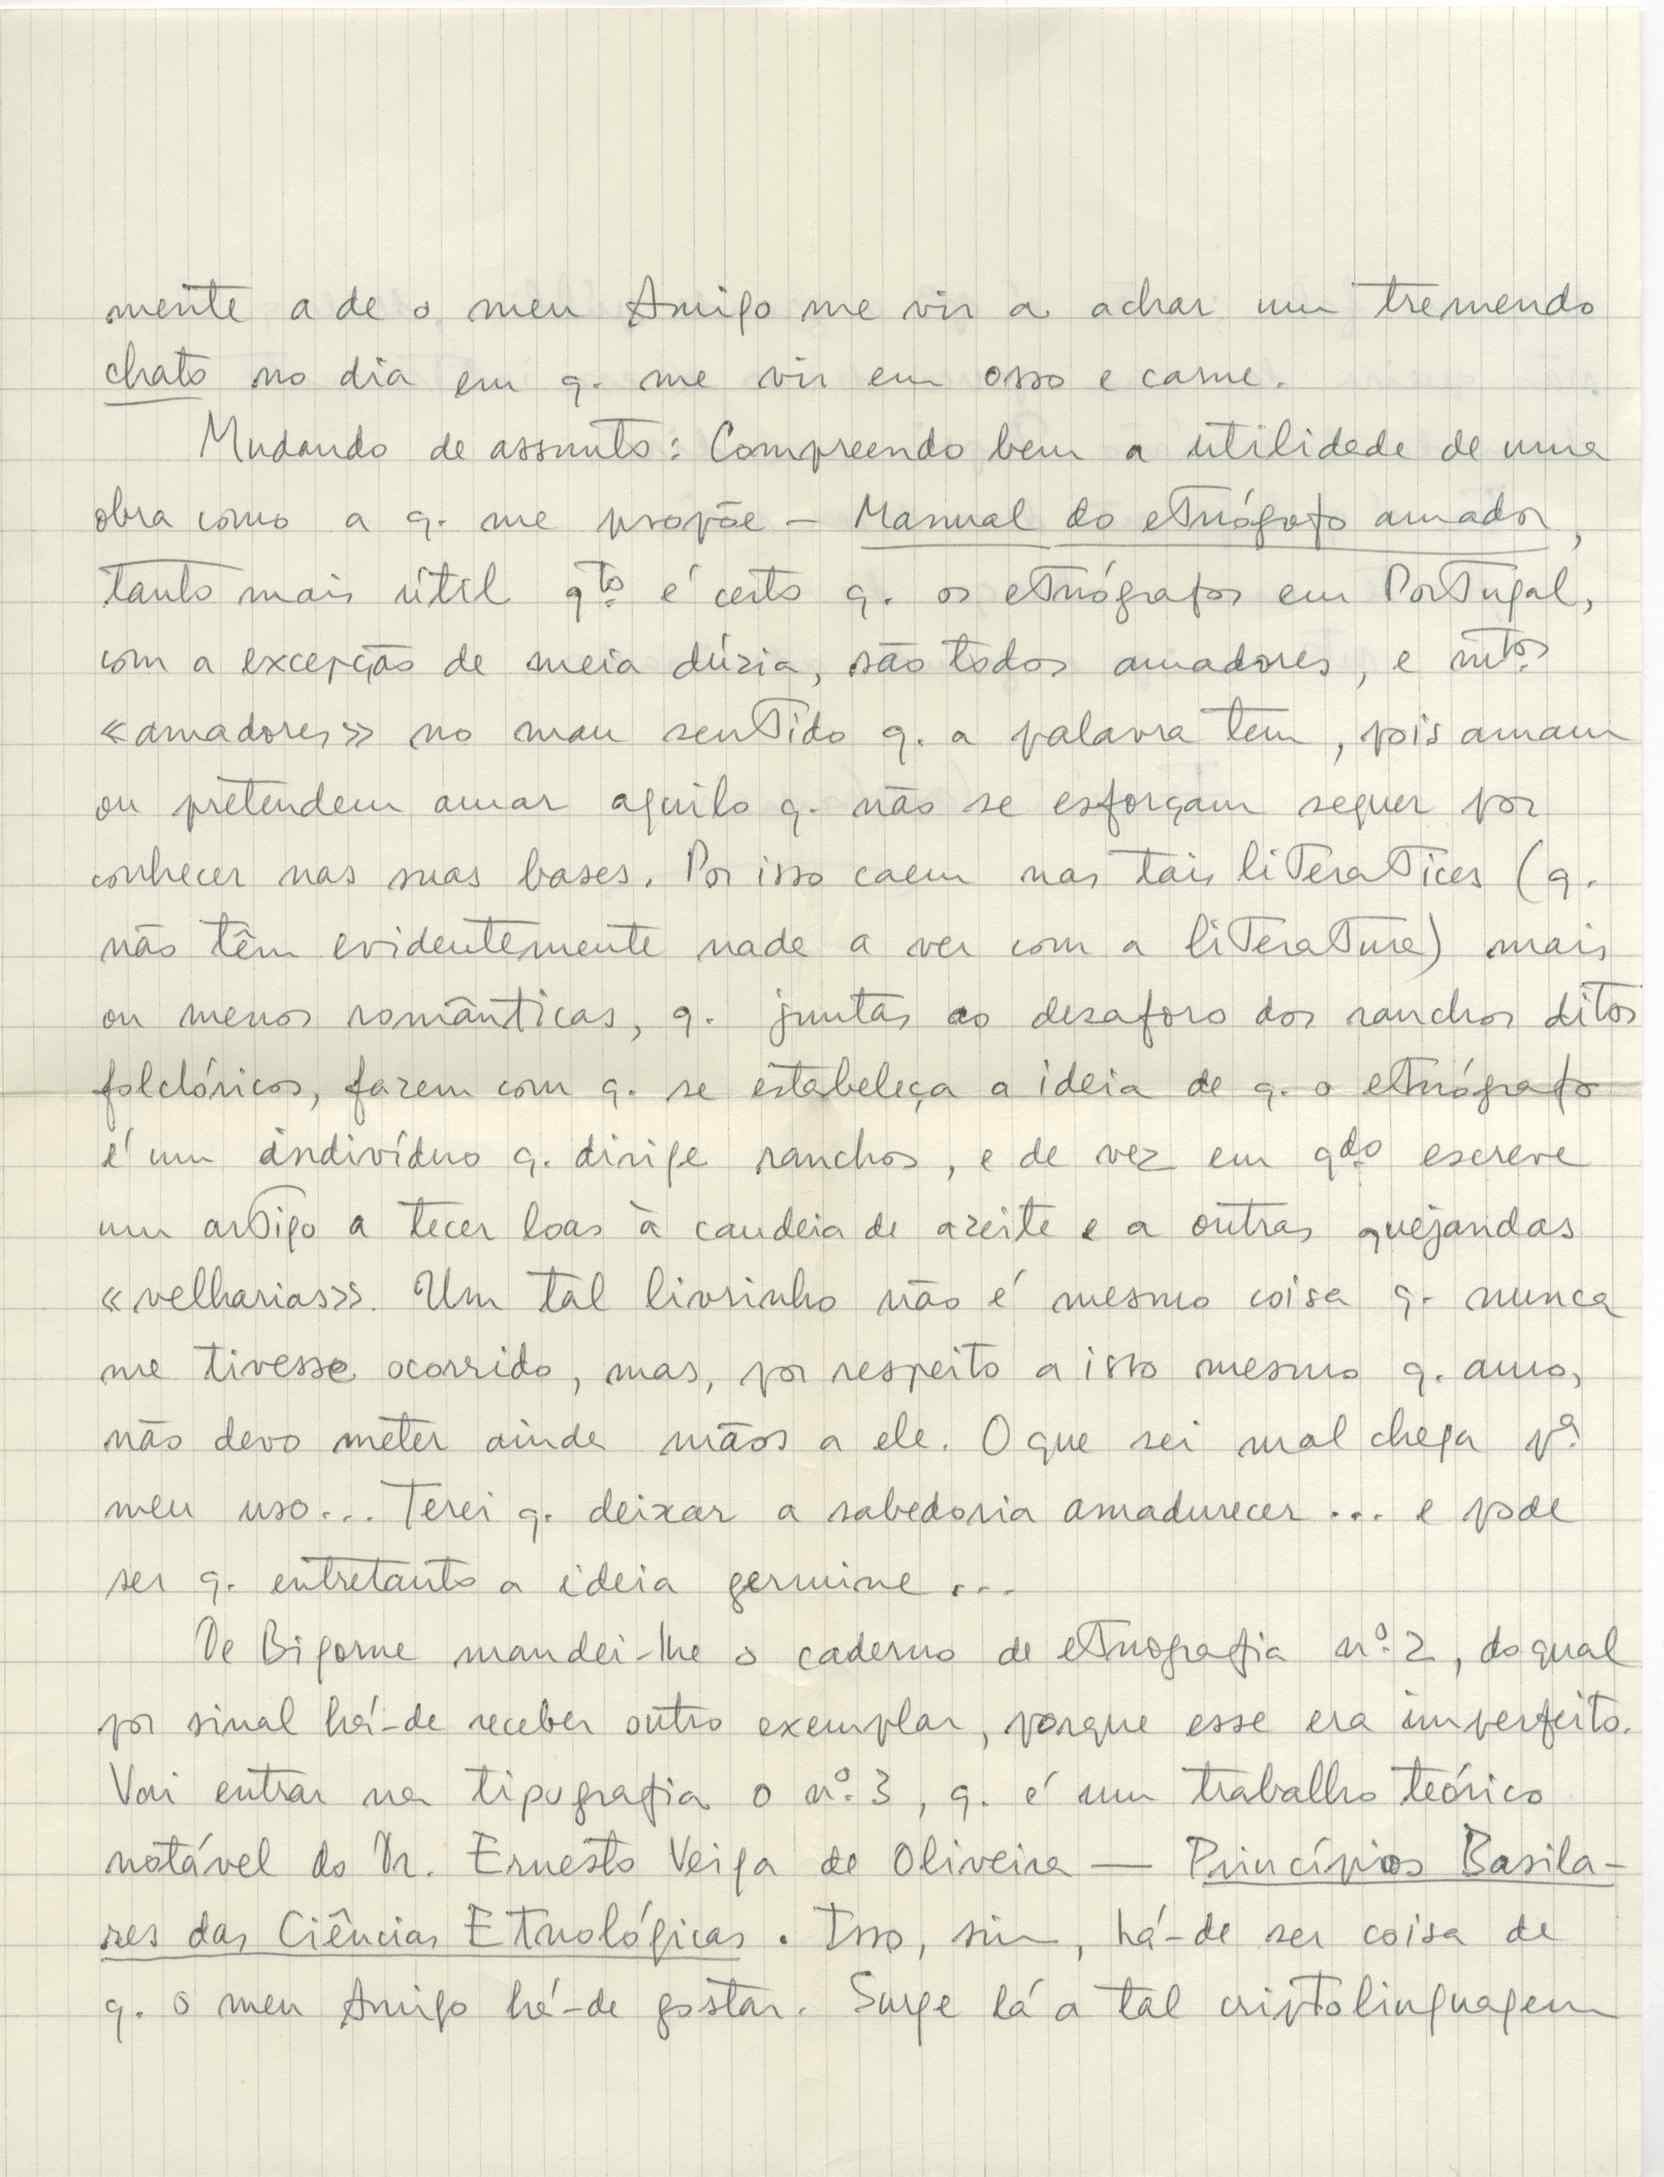 mente a de o meu Amigo me vir a achar um tremendo
chato no dia em q. me vir em osso e carne.
Mudando de assunto: Compreendo bem a utilidade de uma
obra como a q. me propõe – Manual do etnógrafo amador,
tanto mais útil qto. é certo q. os etnógrafos em Portugal,
com a excepção de meia dúzia, são todos amadores, e mtos.
«amadores» no mau sentido q. a palavra tem, pois amam
ou pretendem amar aquilo q. não se esforçam sequer por
conhecer nas suas bases. Por isso caem nas tais literatices (q.
não têm evidentemente nada a ver com a literatura) mais
ou menos românticas, q. juntas ao desaforo dos ranchos ditos
folclóricos, fazem com q. se estabeleça a ideia de q. o etnógrafo
é um indivíduo q. dirige ranchos, e de vez em qdo. escreve
um artigo a tecer loas à candeia de azeite e a outras quejandas
«velharias». Um tal livrinho não é mesmo coisa q. nunca
me tivesse ocorrido, mas, por respeito a isto mesmo q. amo,
não devo meter ainda mãos a ele. O que sei mal chega pª.
meu uso... Terei q. deixar a sabedoria amadurecer... e pode
ser q. entretanto a ideia germine...
De Bigorne mandei-lhe o caderno de etnografia nº. 2, do qual
por sinal há-de receber outro exemplar, porque esse era imperfeito.
Vai entrar na tipografia o nº. 3, q. é um trabalho teórico
notável do Dr. Ernesto Veiga de Oliveira — Princípios Basila-
res das Ciências Etnológicas. Isso, sim, há-de ser coisa de
q. o meu Amigo há-de gostar. Surge lá a tal criptolinguagem